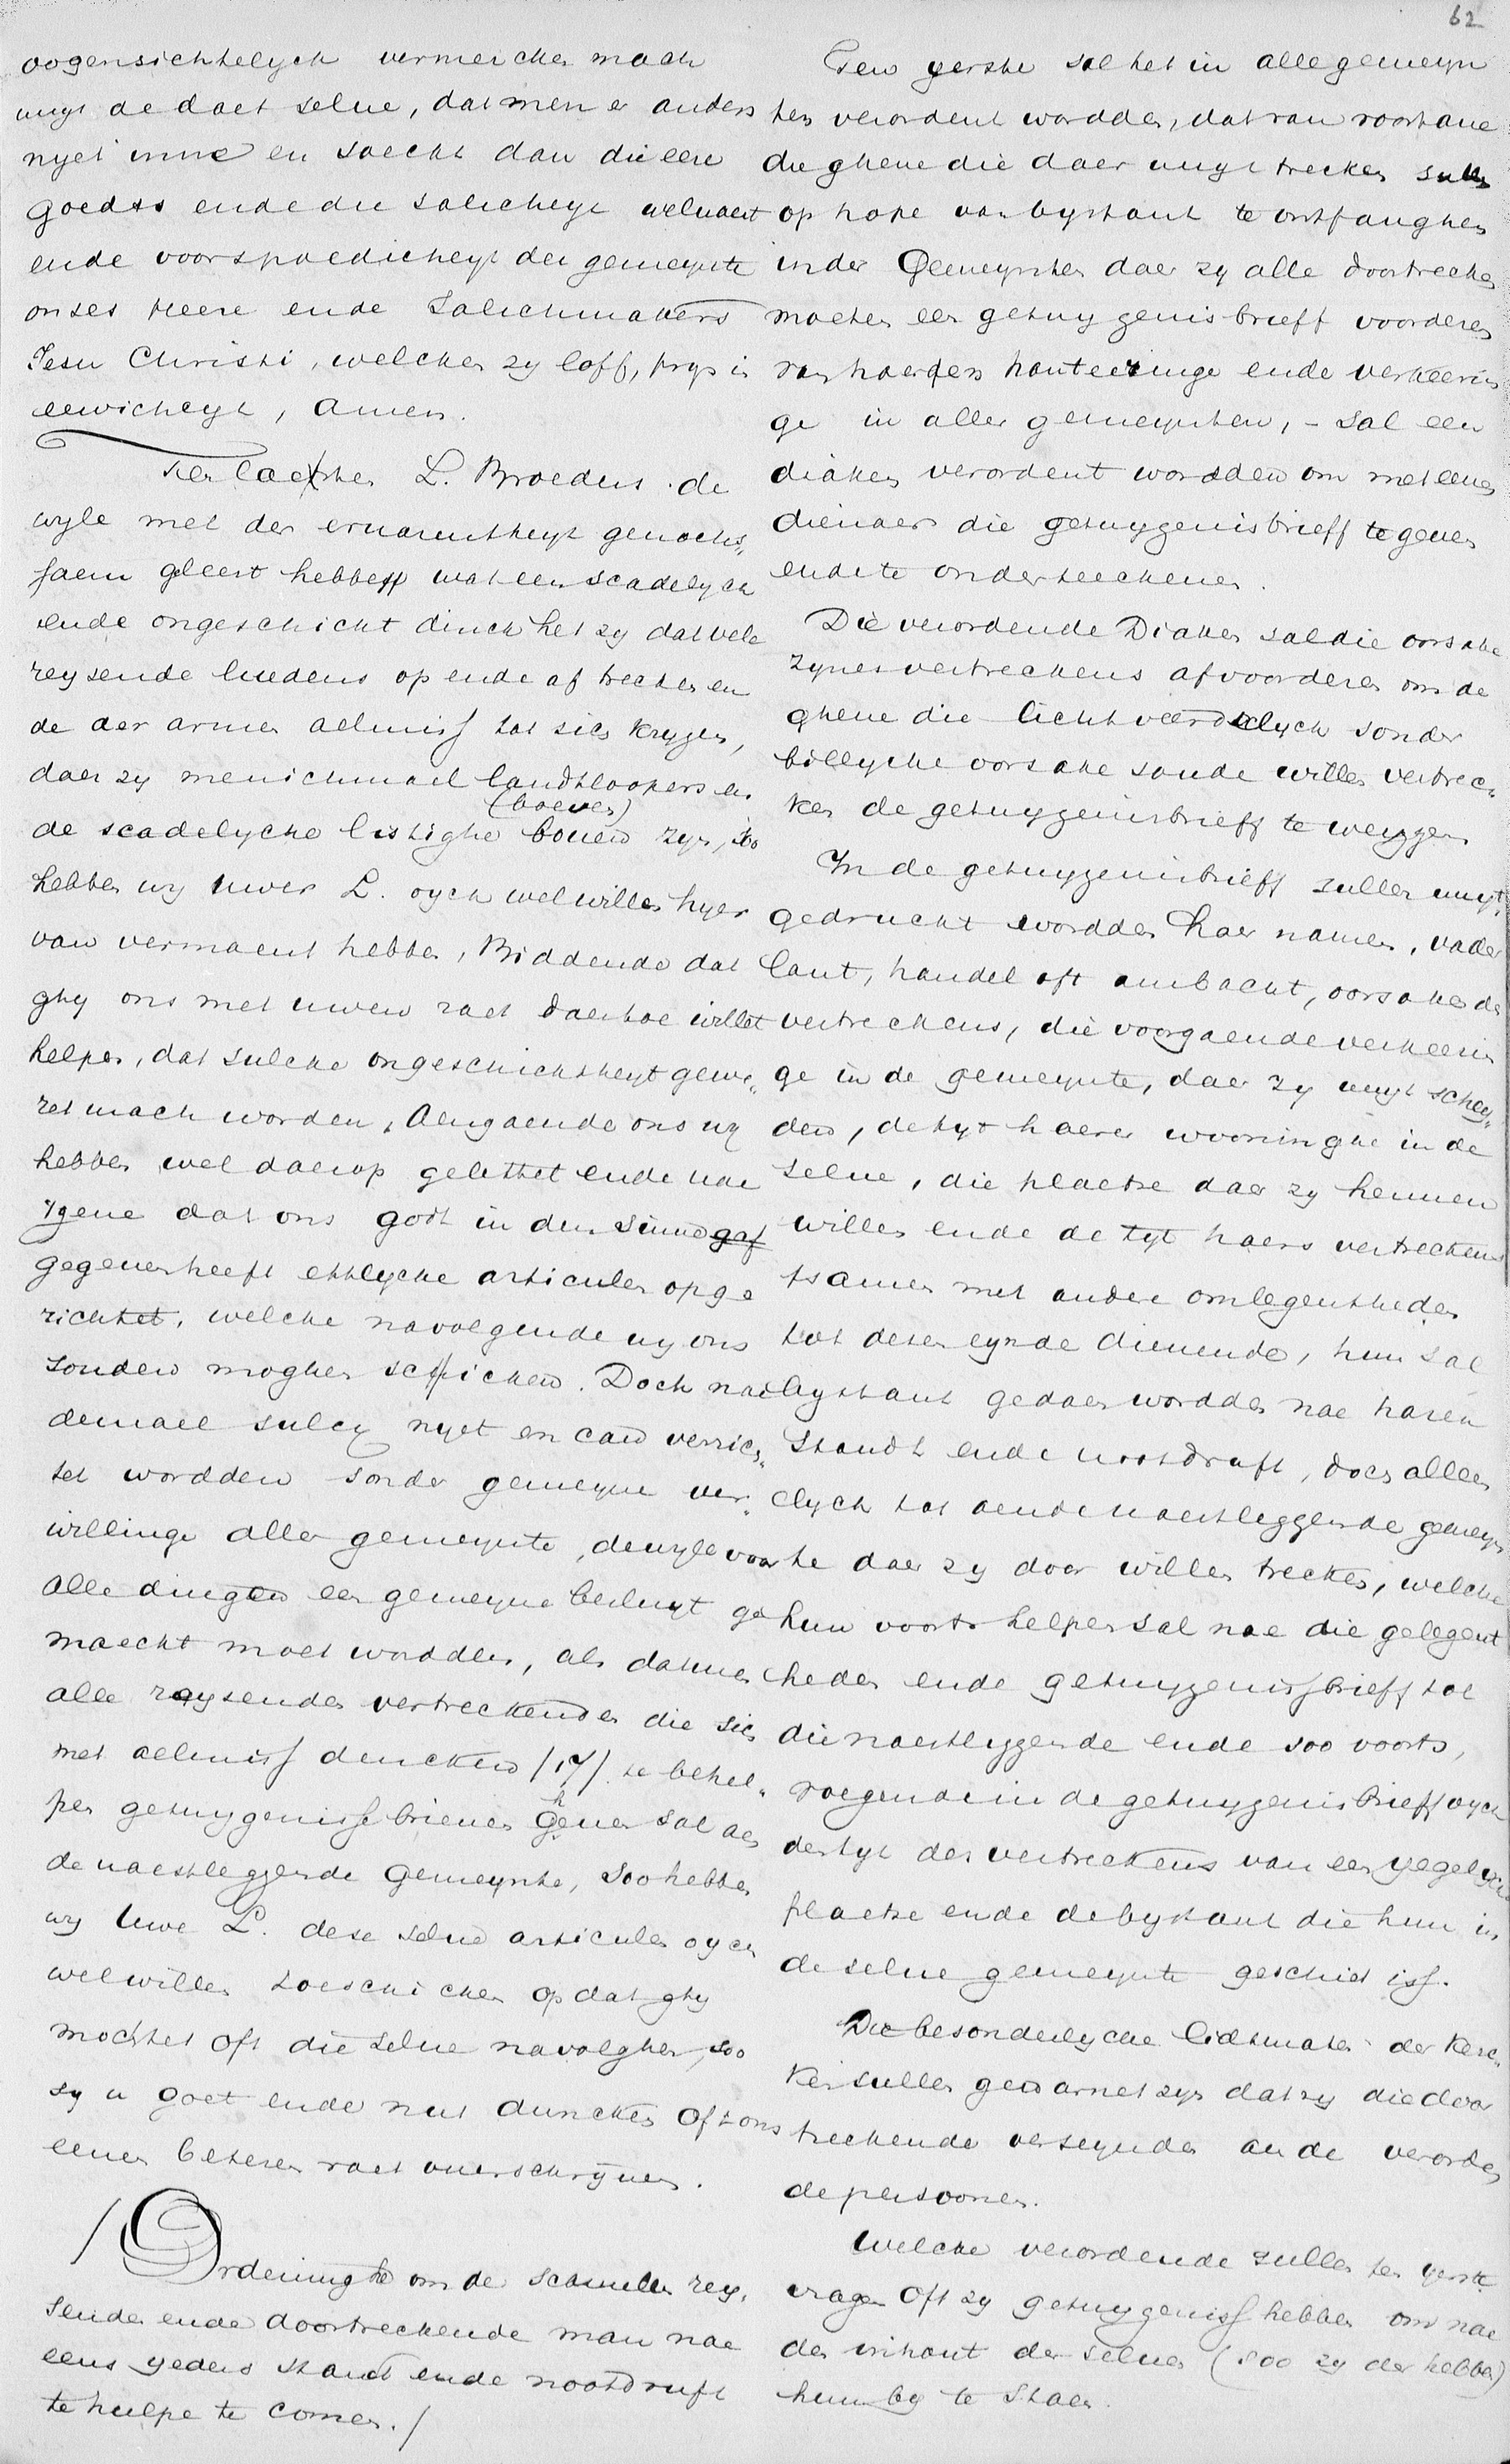 62
oogensichtelyck vermercken mach
uuyt de daet selue, dat men er anders
nyet inne en soeckt dan die eere
Goedts ende die salicheyt welvaert
ende voorspoedicheyt der gemeynte
onses Heere ende Salichmakers
Jesu Christi, welcken zy loff, prys in
eewicheyt, Amen.
Ten laetsten L. Broeders de
wyle met der ervarentheyt genoech„
saem gleert hebben wat een scadelyck
ende ongeschickt dinck het zy dat vele
reysende luedens op ende af trecken en
de der armen aelmiss tot sich krygen,
daer zy menichmael landtloopers en
(boeven)
de scadelycke listighe bouen zyn, soo
hebben wy uwer L. oyck wel willen hyer
van vermaent hebben, Biddende dat
ghy ons met uwen raet daertoe willet
helpen, dat sulcke ongeschicktheyt gewe„
ret mach worden, Aengaende ons wy
hebben wel daerop gelettet ende nae
tgene dat ons Godt in den sinne gaf
gegeven heeft ettlycke articulen opge
richtet, welcke navolgende wy ons
souden moghen schicken. Doch nae
demael sulcx nyet en can verrich„
tet wordden sonder gemeyne ver„
willinge aller gemeynte, dewyle voor
alle dingen een gemeyne besluyt ge
maeckt moet wordden, als datmen
alle reysenden vertreckenden die sich
met aelmiss dencken /17/ te behel„
h
pen getuygenisse brieuen geuen sal aen
de naestleggende Gemeynte, Soo hebben
wy Uwe L. dese selue articulen oyck
wel willen toeschicken op dat ghy
mochtet oft die selue navolghen, soo
sy u goet ende nut duncken Oft ons
eenen beteren raet ouerschryuen.
/ Ordeninghe om de schamelen rey„
sende ende doortreckende man nae
eens yeders standt ende nootdruft
te hulpe te comen. /
Ten yersten sal het in alle gemeyn
ten verordent wordden, dat van voortane
die ghene die daer uuyt trecken sullen
op hope van bystant te ontfanghen
in der Gemeynten daer zy alle doortrecken
moeten een getuygenisbrieff voorderen
van haerder hanteeringe ende verkeerin
ge in aller gemeynten, - sal een
diaken verordent wordden om met eenen
dienaer die getuygenisbrieff te geuen
ende te onderteeckenen.
Die verordende Diaken sal die oorsake
zynes vertreckens afvoorderen om de
ghene die lichtveerdelyck sonder
billycke oorsake soude willen vertrec„
ken de getuygenisbrieff te weygeren
In de getuygenisbrieff sullen uuyt„
gedruckt wordden haer namen, vader
lant, handel oft ambacht, oorsaken des
vertreckens, die voorgaende verkeerin
ge in de gemeynte, daer zy uuyt schey„
den, de tyt haerer wooninghe in de
selue, die plaetse daer zy hennen
willen ende de tyt haers vertreckens
tsamen met andere omlegentheden
tot desen eynde dienende, hun sal
bystant gedaen wordden nae haren
Standt ende nootdruft, doch alleen
clyck tot aen de naestleggende gemeyn
te daer zy door willen trecken, welcke
hun voorts helpen sal nae die gelegent
heden ende getuygenissbrieff tot
die naestleggende ende soo voorts,
voegende in de getuygenisbrieff oyck
den tyt des vertreckens van een yegelycke
plaetse ende de bystant die hun in
de selue gemeynte geschiet iss.
Die besonderlycke lidtmaten der Kerc„
ken sullen gewarnet zyn dat zy die door
treckende verseynden aen de verorden
de persoonen.
Welcke verordende sullen ten yersten
vragen Oft zy getuygeniss hebben om nae
den inhout der seluer (soo zy der hebben)
hun by te staen.